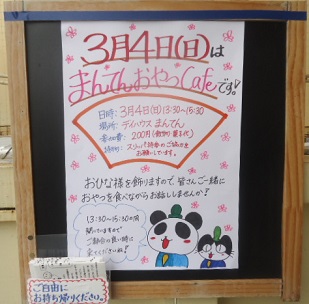 3月4日(日)は
まんてんおやつCafeです。
日時: 3月4日(日)13:30~15:30
場所: デイハウス まんてん
参加費: 200円
スリッパ持参のご協力を
お願いしています。
おひな様を飾りますので、皆さんご一緒に
おやつを食べながらお話ししませんか?
13:30~15:30の間
開いていますので
ご都合の良い時に
来てくださいね!
ご自由に
お持ち帰りください。